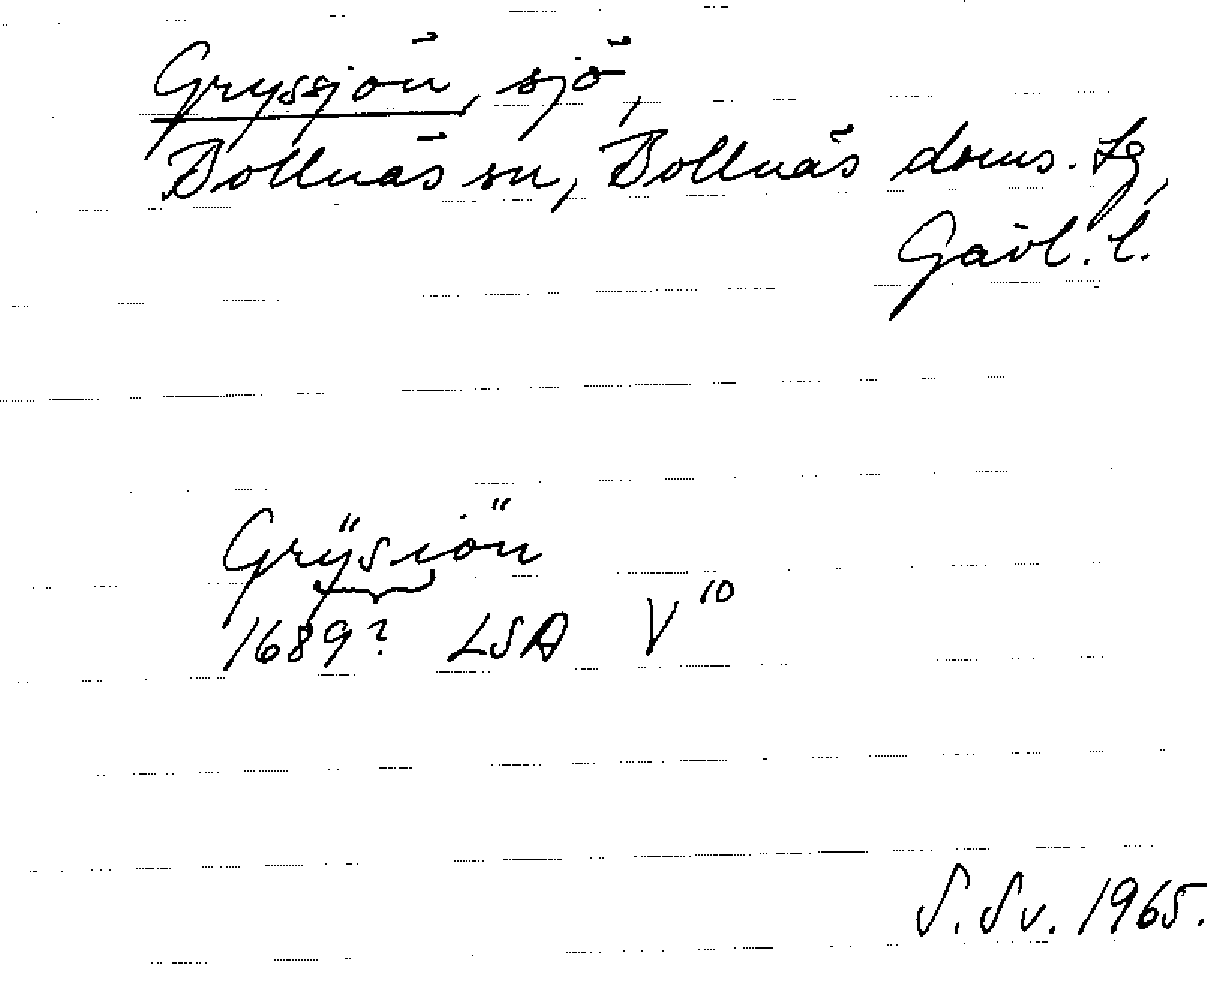 Gryssjön, sjö,
Bollnäs sn, Bollnäs doms. tg,
Gävl. l.
Grÿsiön
1689? LSA V¹⁰
S. Sv. 1965.